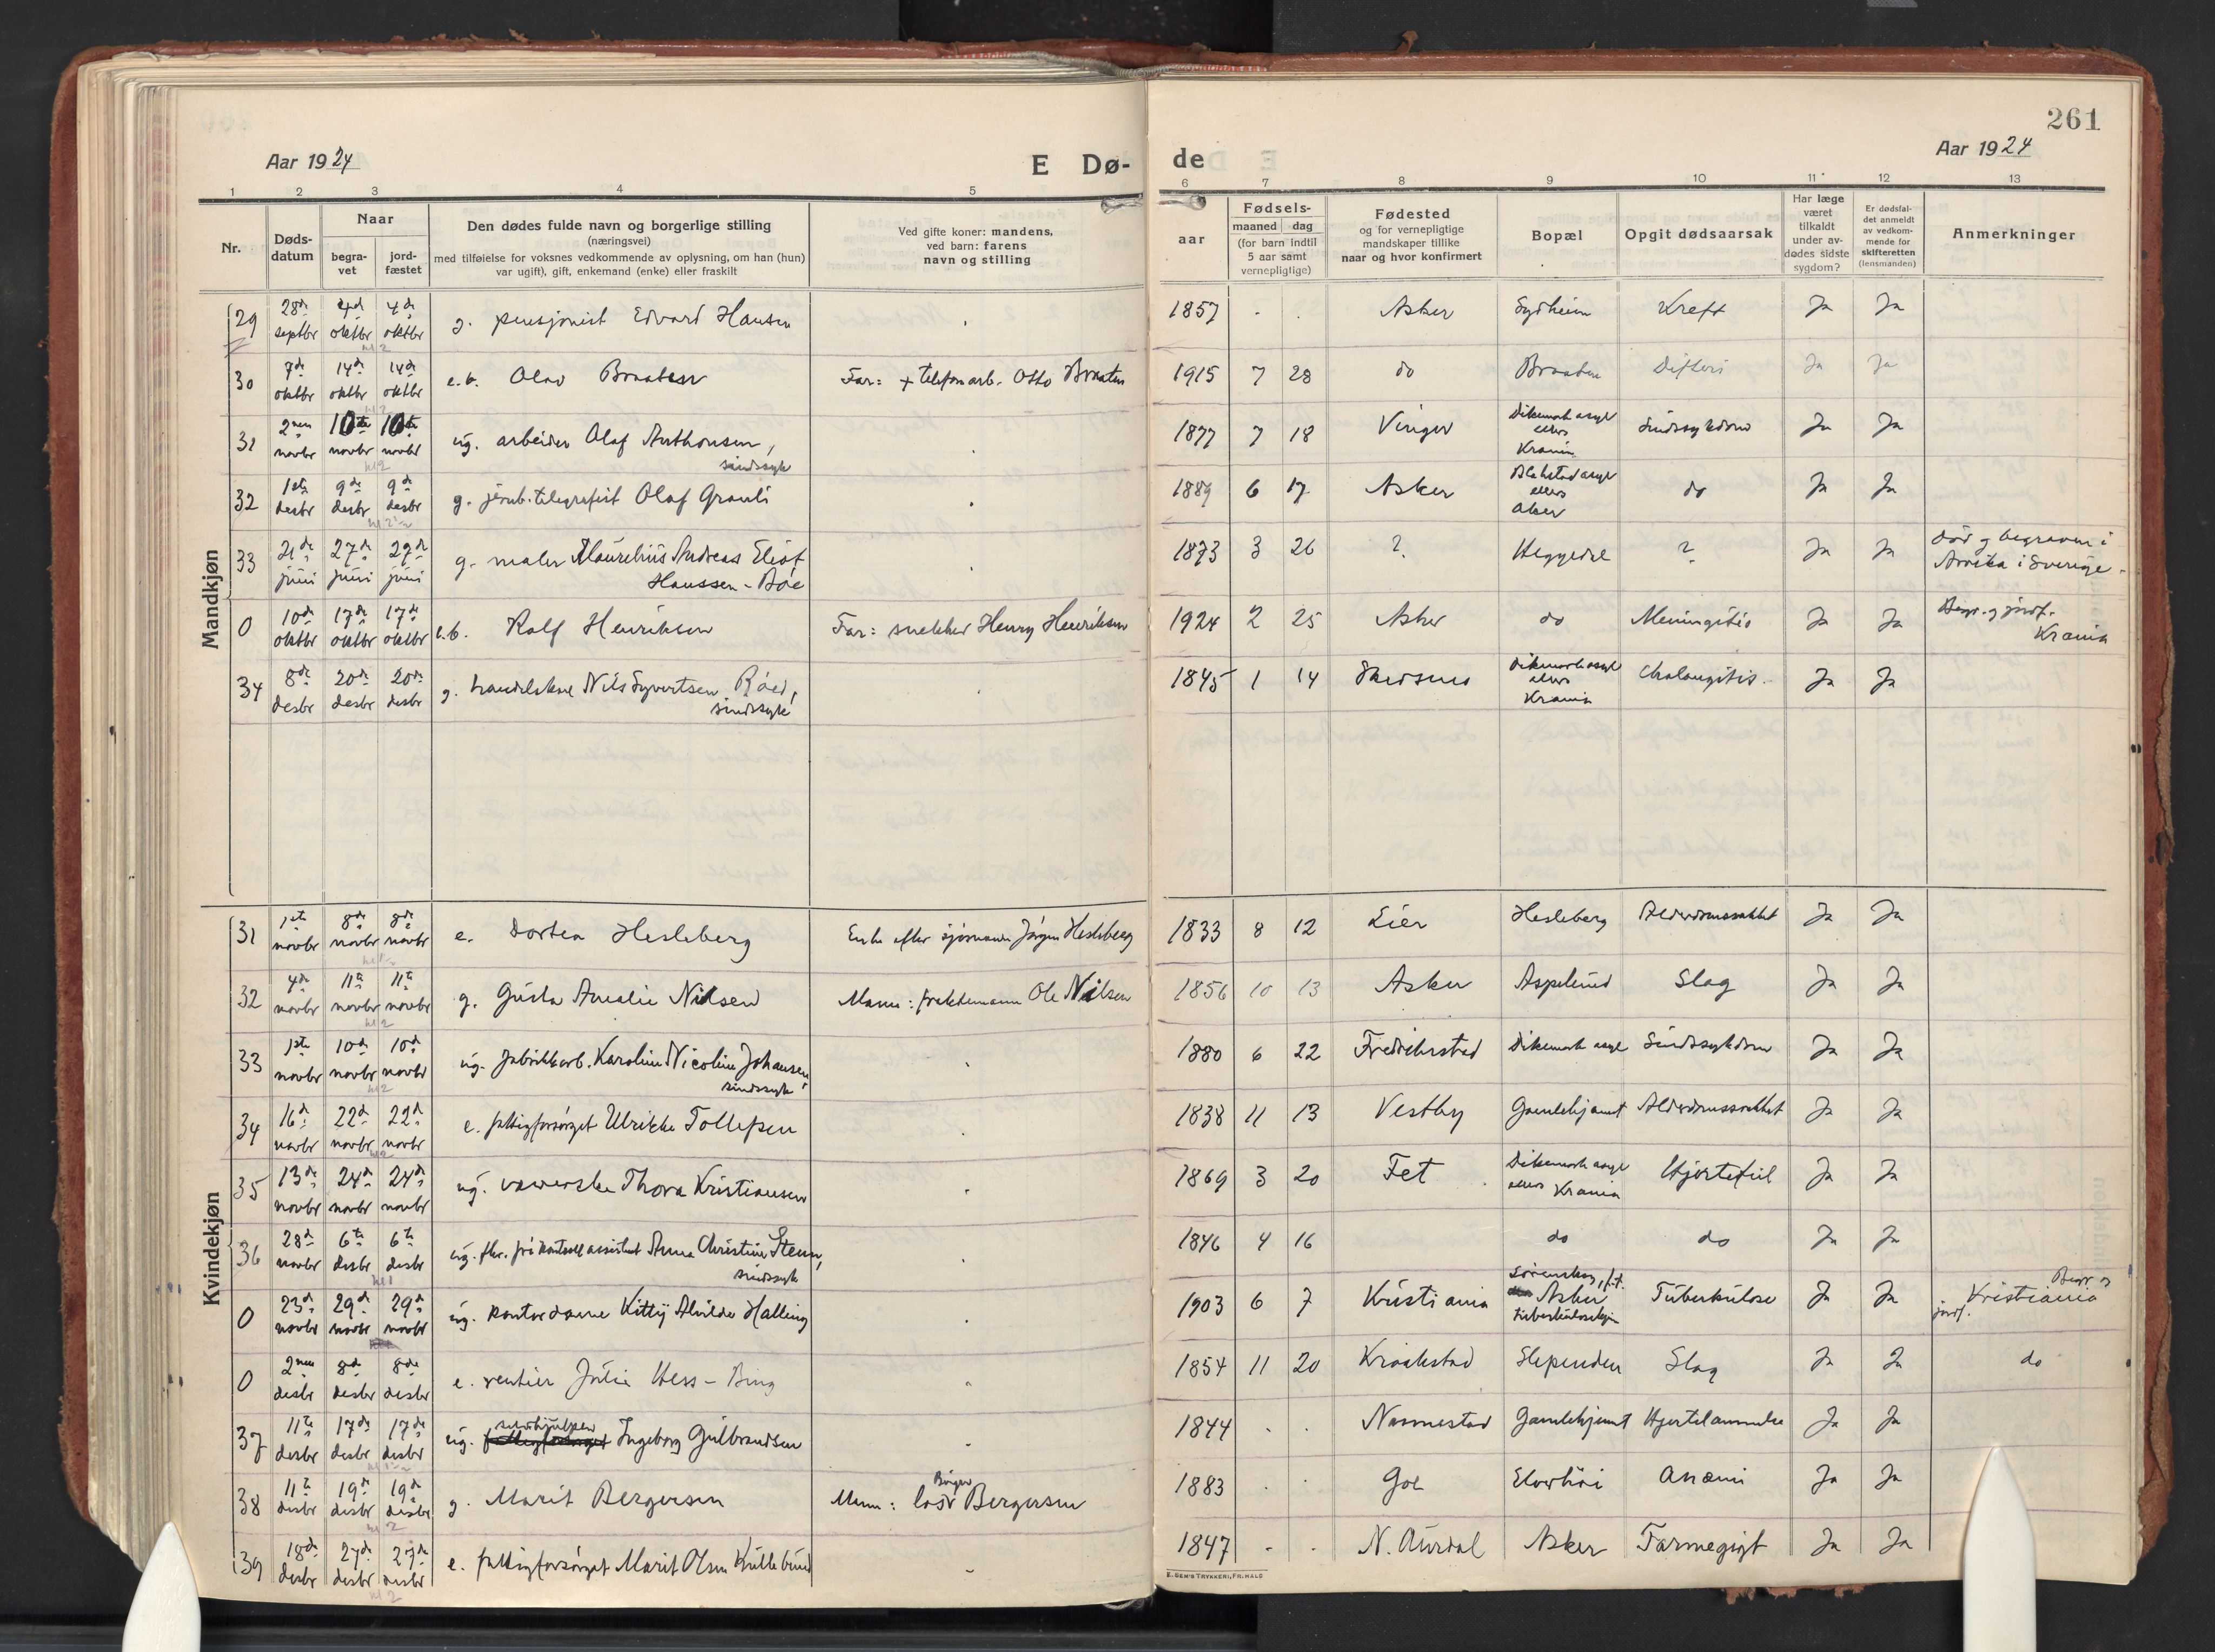 261
Aar 1924
E Dø-
de
Aar 1924
1 2 3 4 5 6 7 8 9 10 11 12 13
Nr.
Døds-
datum
Naar
begra-
vet
jord-
fæstet
Den dødes fulde navn og borgerlige stilling
(næringsvei)
med tilføielse for voksnes vedkommende av oplysning, om han (hun)
var ugift), gift, enkemand (enke) eller fraskilt
Ved gifte koner: mandens,
ved barn: farens
navn og stilling
Fødsels-
aar
maaned dag
(for barn indtil
5 aar samt
vernepligtige)
Fødested
og for vernepligtige
mandskaper tillike
naar og hvor konfirmert
Bopæl
Opgit dødsaarsak
Har læge
været
tilkaldt
under av-
dødes sidste
sygdom?
Er dødsfal-
det anmeldt
av vedkom-
mende for
skifteretten
(lensmanden)
Anmerkninger
Mandkjøn
29 28de septbr 4de oktbr 4de oktbr g. pensjonist Edvard Hansen 1857 Asker Sydheim Kreft Ja Ja
30 7de oktbr 14de oktbr 14de oktbr e.b. Olav Braaten Far: + telefonarb. Otto Braaten 1915 7 28 do Braaten Difteri Ja Ja
31 2nen novbr 10de novbr 10de novbr ug. arbeider Olaf Anthonsen, sindssyk 1877 7 18 Vinger Dikemark asyl ellers Krania Sindssykdom Ja Ja
32 1ste desbr 9de desbr 9de desbr g. jernb.telegrafist Olaf Granli 1889 6 17 Asker Blakstad asyl ellers Aker do Ja Ja
33 21de juni 27de juni 27de juni g. maler Maurehius Andreas Eliot Hanssen-Bøe 1873 3 26 ? Heggedal ? Ja Ja død og begraven i Arvika i Sverige.
0 10de oktbr 17de oktbr 17de oktbr e.b. Ralf Henriksen Far: snekker Henry Henriksen 1924 2 25 Asker do Meningitis Ja Ja Begr. og jordf. Krania
34 8de desbr 20de desbr 20de desbr g. Nils Syvertsen Røed, sindssyk 1845 1 14 Skedsmo Dikemark asyl ellers Krania Cholangitis. Ja Ja
Kvindekjøn
31 1ste novbr 8de novbr 8de novbr e. Dortea Hesleberg Enke efter sjømann Jørgen Hesleberg 1833 8 12 Lier Hesleberg Alderdomssvakhet Ja Ja
32 4de novbr 11te novbr 11te novbr g. Gusta Amalie Nilsen Mann: fraktemann Ole Nilsen 1856 10 13 Asker Aspelund Slag Ja Ja
33 1ste novbr 10de novbr 10de novbr ug. fabrikkarb. Karoline Nicoline Johansen, sindssyk 1880 6 22 Fredrikstad Dikemark asyl Sindssykdom Ja Ja
34 16de novbr 22de novbr 22de novbr e. fattigforsørget Ulrikke Tollefsen 1838 11 13 Vestby Gamlehjemt Alderdomssvakhet Ja Ja
35 13de novbr 24de novbr 24de novbr ug. væverske Thora Kristiansen 1869 3 20 Fet Dikemark asyl ellers Krania Hjertefeil Ja Ja
36 28de novbr 6te desbr 6te desbr ug. fhv. assistent Anna Christine Steen, sindssyk 1846 4 16 do do Ja Ja
0 23de novbr 29de novbr 29de novbr ug. kontordame Kitty Alvilde Halling 1903 6 7 Kristiania Sørenskog, f.t. Asker tuberkulosehjem Tuberkulose Ja Ja Begr. og jordf. Kristiania
0 2nen desbr 8de desbr 8de desbr e. rentier Julie Hess-Bing 1854 11 20 Kraakstad Slependen Slag Ja Ja do
37 11te desbr 17de desbr 17de desbr ug. selvhjulpen Ingeborg Gulbrandsen 1844 Nannestad Gamlehjemt Hjertelammelse Ja Ja
38 11te desbr 19de desbr 19de desbr g. Marit Bergersen Mann: Børger Bergersen 1883 Gol Elvethøi Anæmi Ja Ja
39 18de desbr 27de desbr 27de desbr e. fattigforsørget Marit Olsen Kullebund 1847 N. Aurdal Asker Tarmegigt Ja Ja
E. SEM'S TRYKKERI, FR.HALD